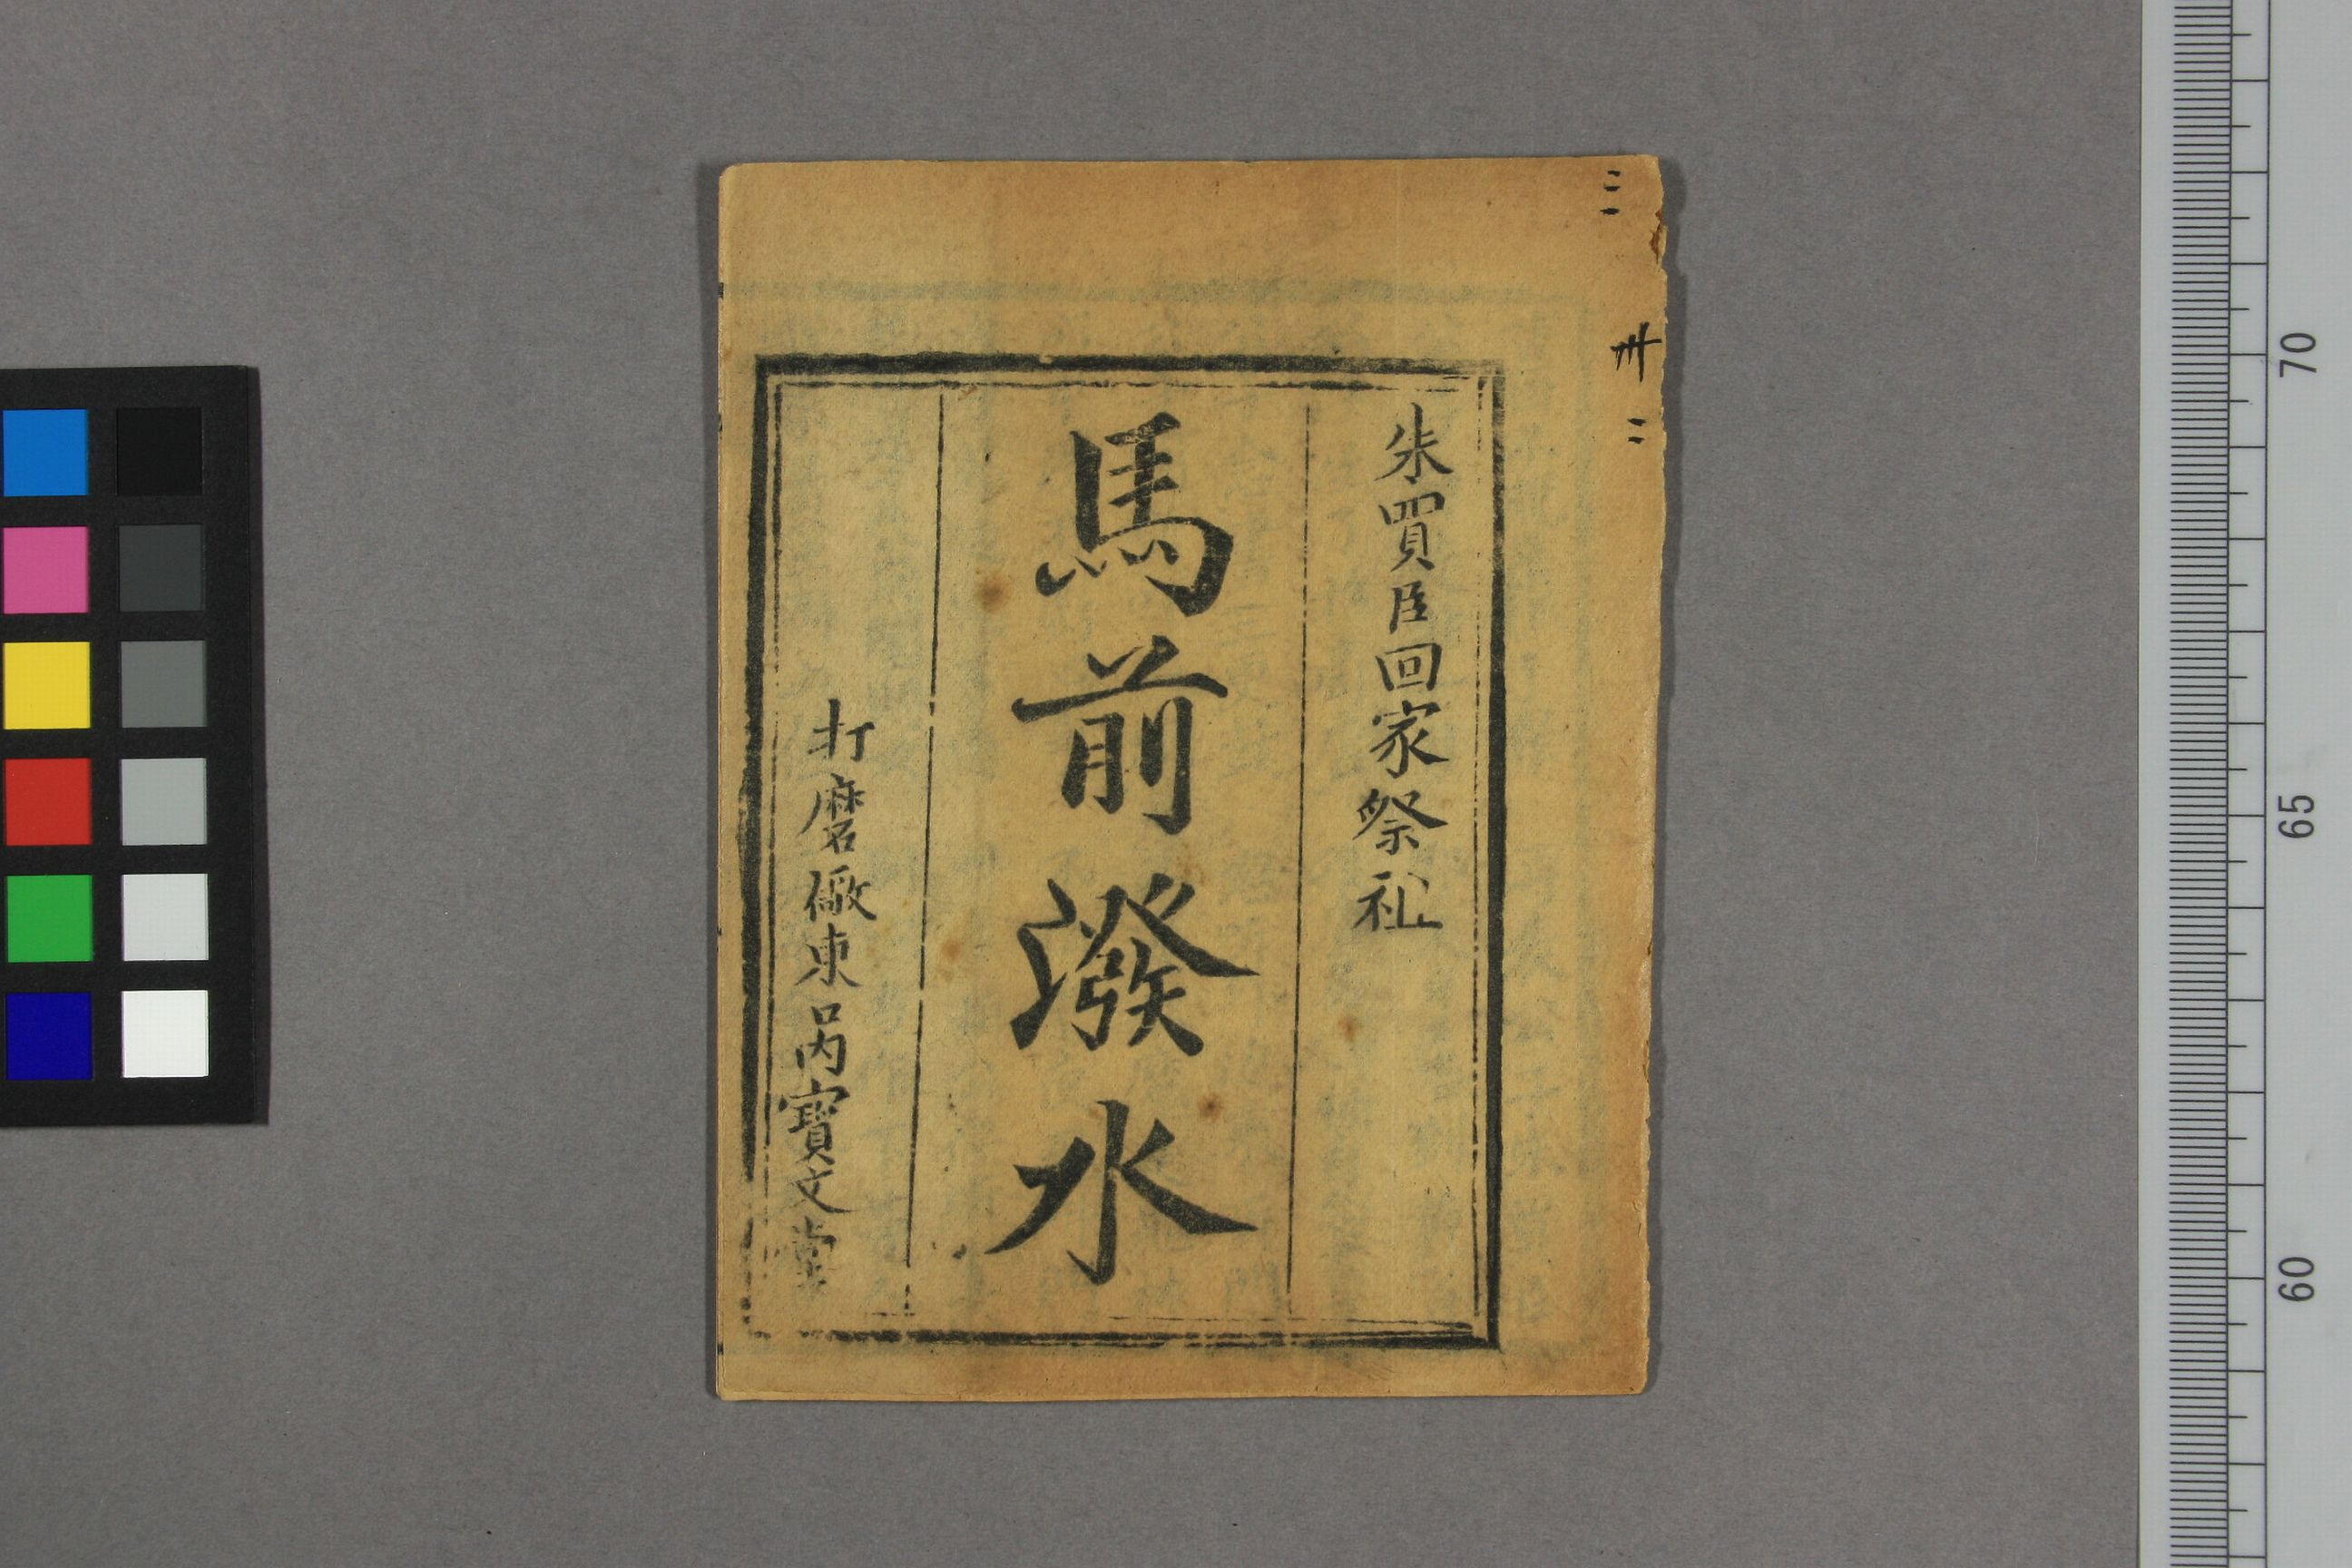 三
卅
二
朱買臣回家祭祖
馬前潑水
打磨厰東口內寳文堂
70
65
60